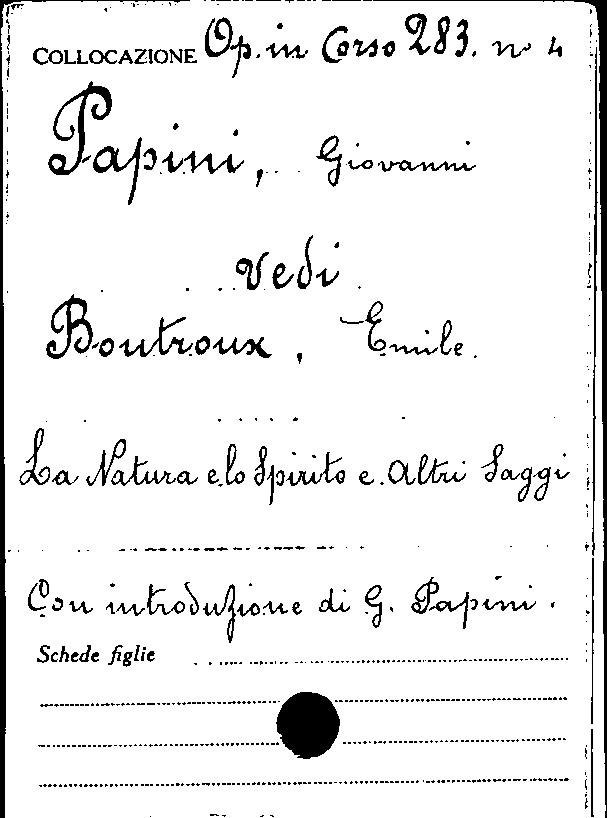 COLLOCAZIONE Op. in Corso 283. n° 4
Papini, Giovanni
Vedi
Boutroux, Emile.
La Natura e lo Spirito e Altri Saggi
Con introduzione di G. Papini.
Schede figlie